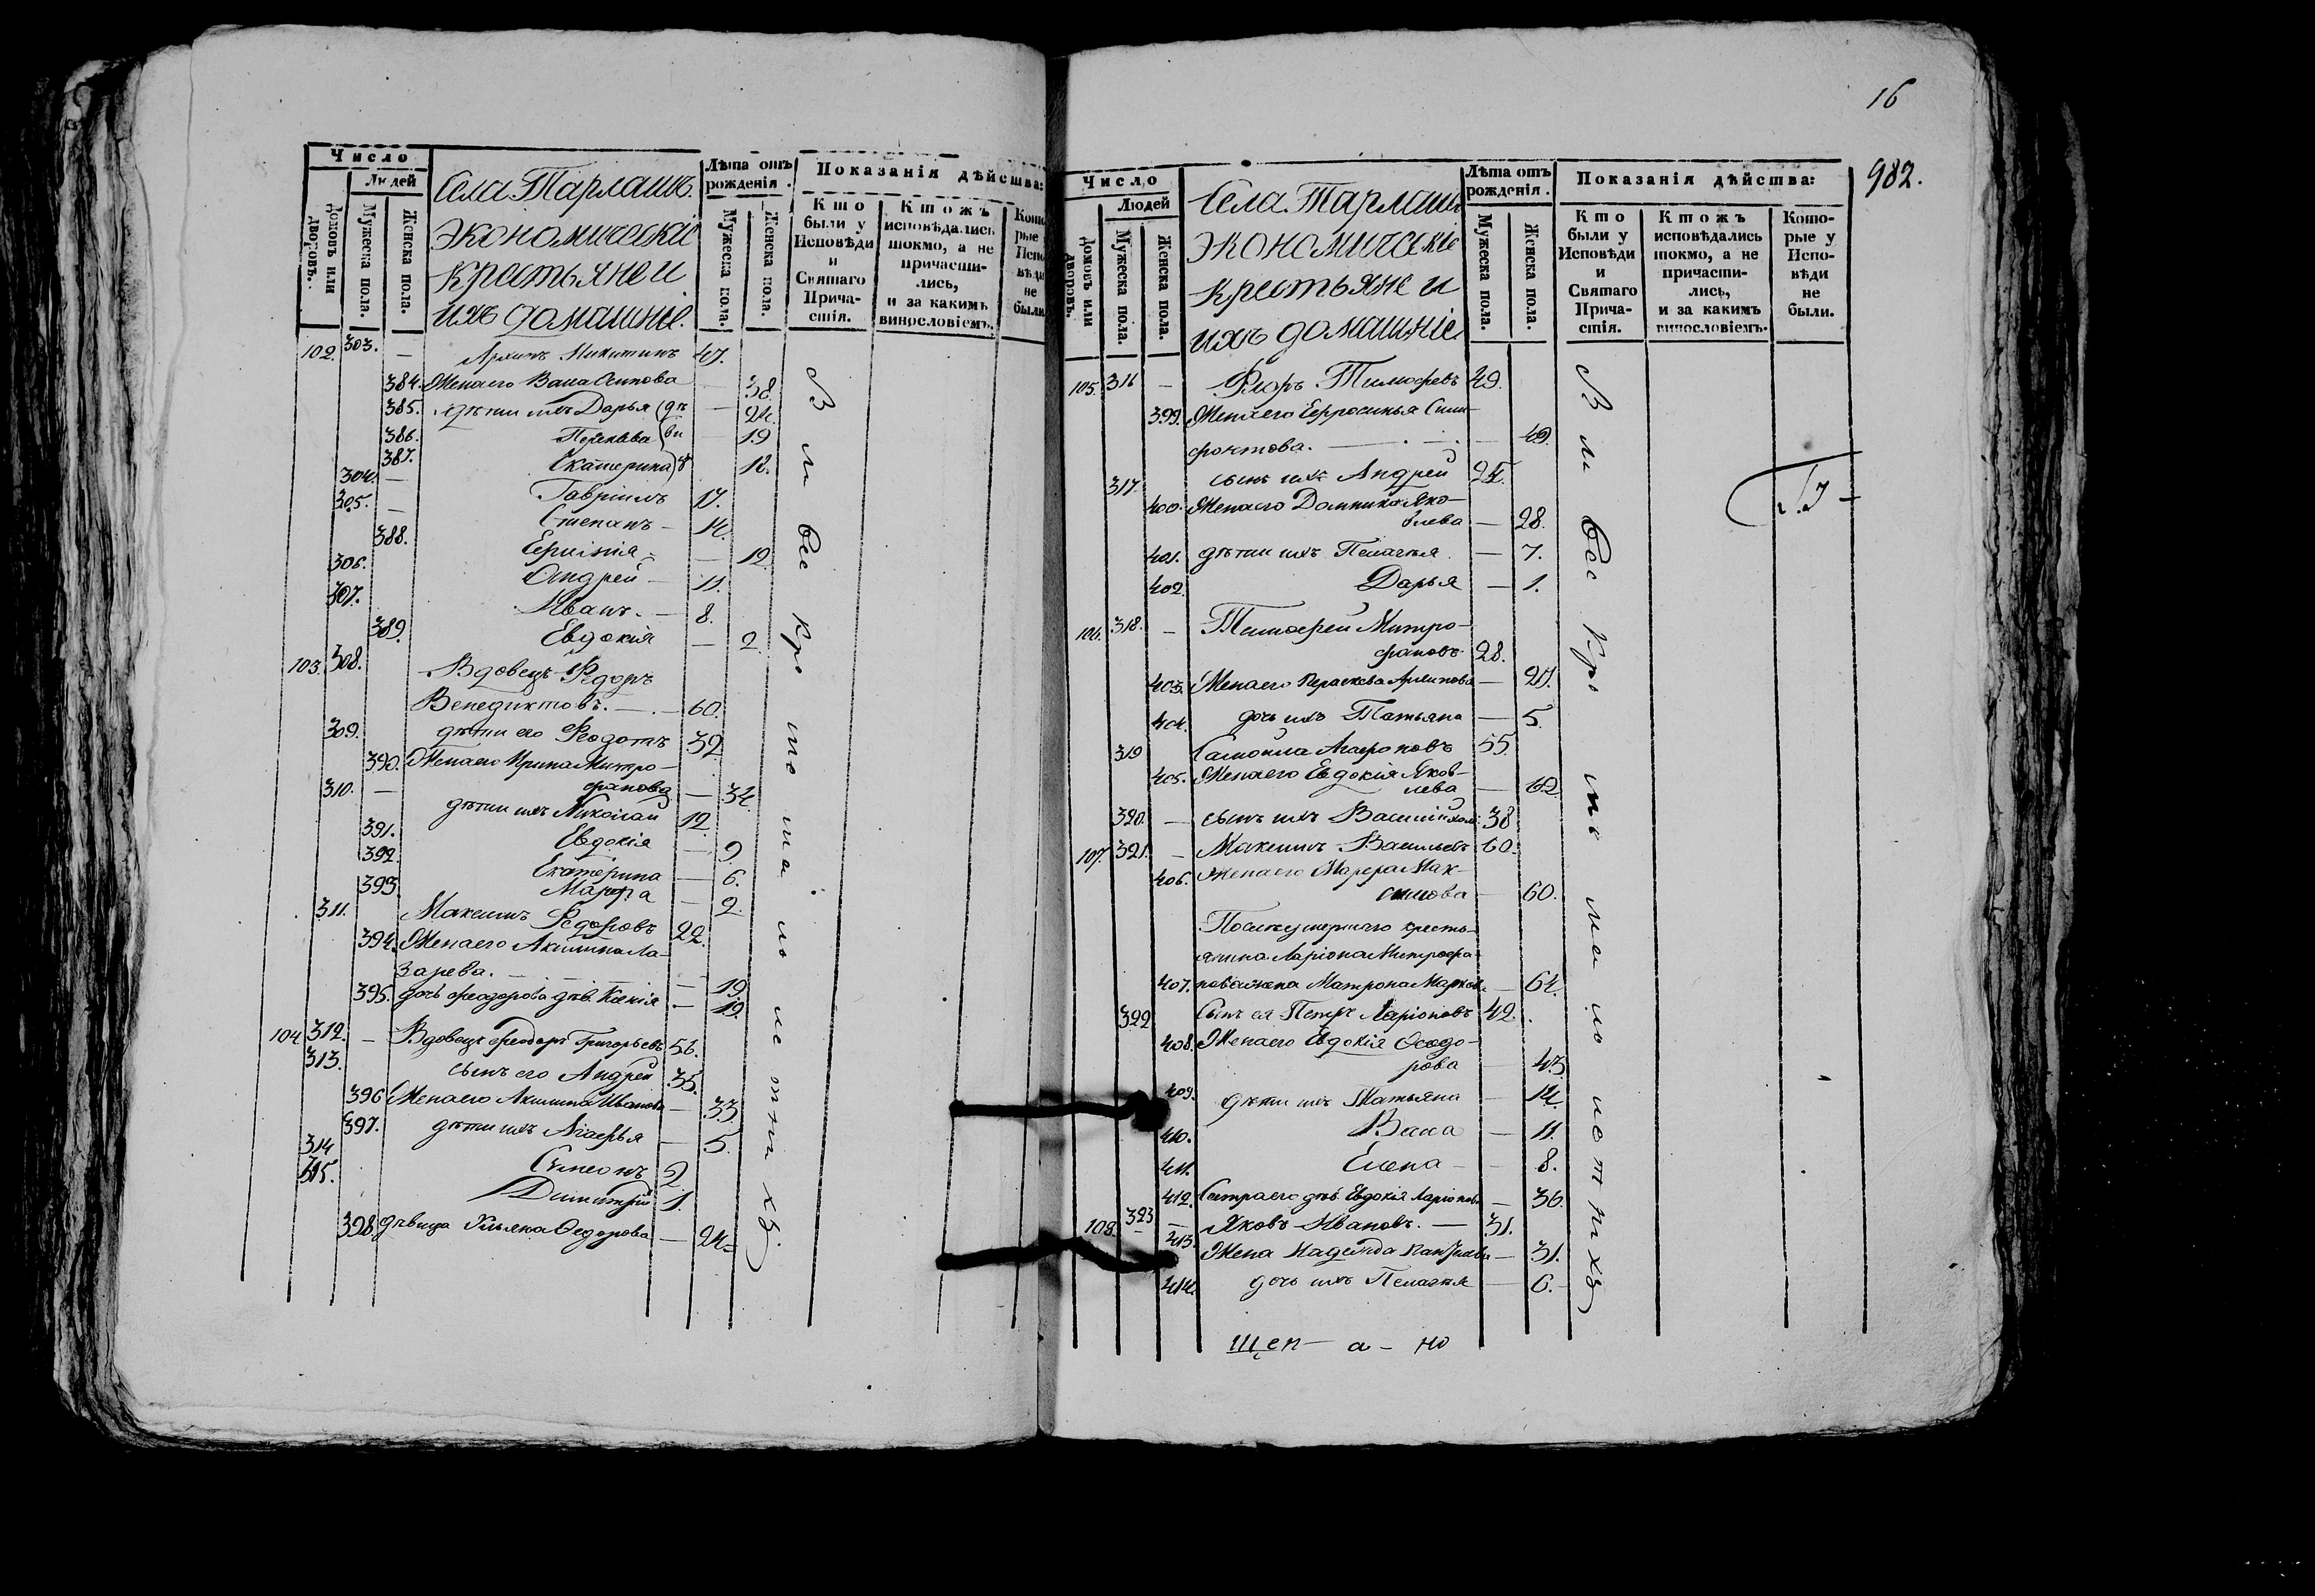 Число
Людей
Домовъ или дворовъ.
Мужеска пола.
Женска пола.
Села Тарлашъ
экономическіе
крестьяне и
ихъ домашніе.
Лѣта отъ рожденія.
Мужеска пола.
Женска пола.
Показанія дѣйства:
Кто были у Исповѣди и Святаго Причастія.
Ктожъ исповѣдались токмо, а не причастились, и за какимъ винословіемъ.
Кото-
рые
Испо
вѣди
не
были
102. 303. — Архипъ Никитинъ 47.
384. Жена его Васа Осипова — 38.
385. дѣти ихъ Дарья (дѣ — 24.
386. (ви — 19
387. Екатерина 18.
304. — Гавріилъ 17.
305. — Степанъ — 14.
388. — 12.
306. Андрей — 11.
307. Иванъ. — 8.
389. Евдокія — 2.
103. 308. Вдовецъ Федоръ
Венедиктовъ. — 60.
309. дѣти его Феодотъ 32.
390. Жена его Ирина Митро-
310. — фанова — 34.
дѣти ихъ Николай 12.
391. Евдокія — 9.
392. Екатерина — 6.
393. Марфа — 2.
311. Максимъ Федоровъ 22.
394. Жена его Акилина Ла-
зарева. — 19.
395. дочь Феодорова дѣв. Ксенія — 19.
104 312. — Вдовецъ Феодоръ Григорьевъ 56.
313. сынъ его Андрей 35.
396 Жена его Акилина Иванова — 33.
397. дѣти ихъ Агафья — 5.
314 Симеонъ 2
315. Димитрій 1.
398. дѣвица Ульяна Федорова — 24.
В и вс кро то ма ло лѣтнихъ
16
982.
Число
Людей
Домовъ или дворовъ.
Мужеска пола.
Женска пола.
Села Тарлашъ
экономическіе
крестьяне и
ихъ домашніе
Лѣта отъ рожденія.
Мужеска пола.
Женска пола.
Показанія дѣйства:
Кто были у Исповѣди и Святаго Причастія.
Ктожъ исповѣдались токмо, а не причастились, и за какимъ винословіемъ.
Которые у Исповѣди не были.
105. 316 — Флоръ Тимофевъ 49.
399. Жена его Ефросинья
— 49.
317. сынъ ихъ Андрей 25.
400. Жена его Домника Яко-
влева — 28.
401. дѣти ихъ Пелагья — 7.
402. Дарья — 1.
106. 318. — Тимофей Митро-
фановъ 28.
403. Жена его Параскева Архипова — 27.
404. дочь ихъ Татьяна — 5.
319 Самойла Агафоновъ 55.
405. Жена его Евдокія Яков-
лева — 62.
320. — сынъ ихъ Василій 38
107. 321. — Максимъ Васильевъ 60.
406. Жена его Марфа Мак-
симова — 60.
Послѣ умершаго кресть-
янина Ларіона Митрофа-
407. нова жена Матрона Маркова — 64.
322 Сынъ ея Петръ Ларіоновъ 42.
408. Жена его Евдокія Феодо-
рова — 43
409. дѣти ихъ Татьяна — 14.
410. Васа — 11.
411. Елена — 8.
412. Сестра его дѣв. Евдокія Ларіонова — 36.
108. 323 — Яковъ Ивановъ. — 31.
413. Жена Надежда — 31.
414. дочь ихъ Пелагья — 6.
В и вс кро то ма ло лѣтнихъ
щен — а — но